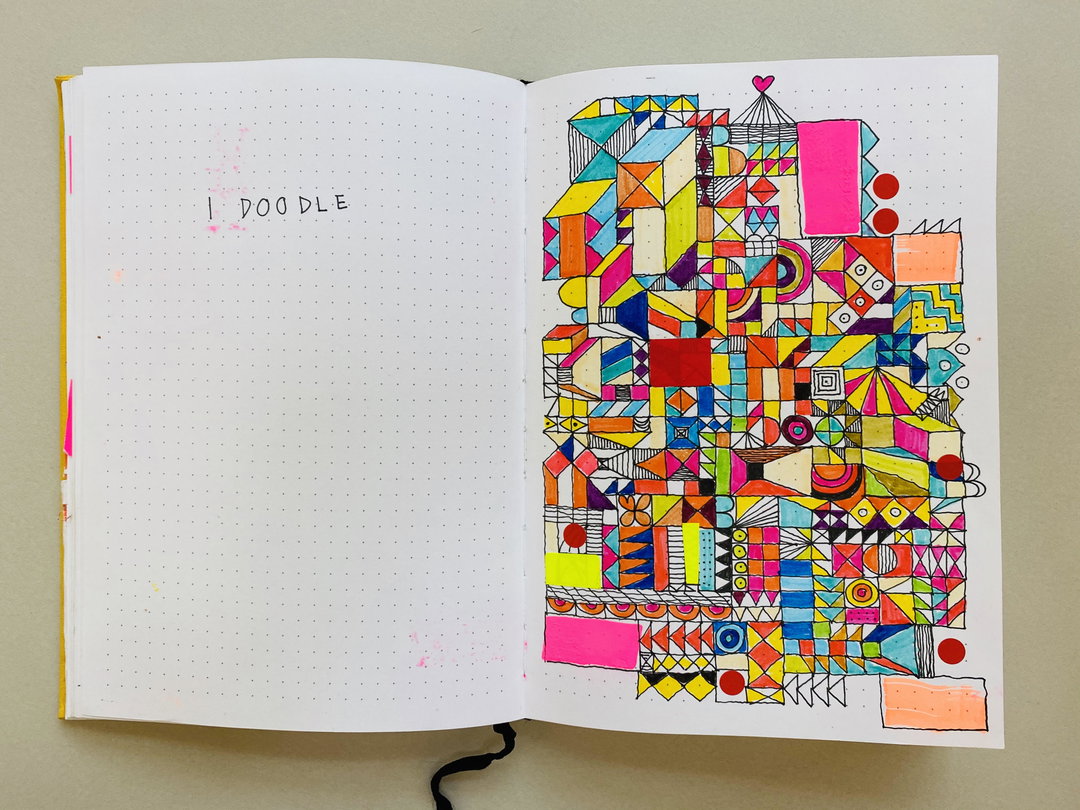 I DOODLE